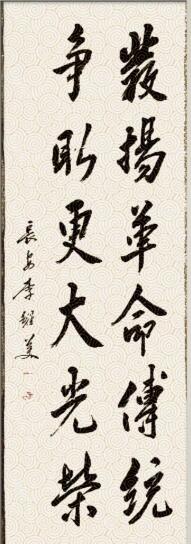 發揚革命傳統
争取更大光榮
長安李